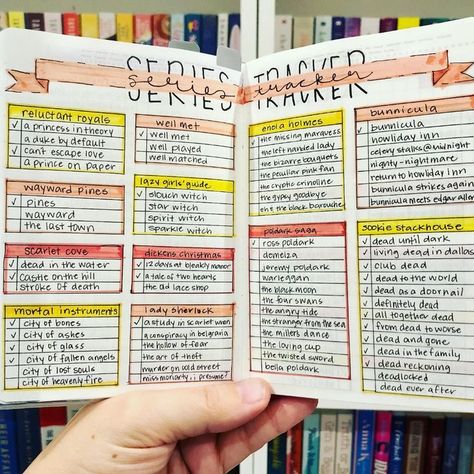 SERIES
series
TRACKER
tracker
reluctant royals
✓ a prince in theory
a duke by default
can't escape love
a prince on paper
wayward pines
✓ pines
wayward
the last town
scarlet cove
✓ dead in the water
✓ castle on the hill
stroke of death
mortal instruments
✓ city of bones
✓ city of ashes
✓ city of glass
✓ city of fallen angels
city of lost souls
city of heavenly fire
well met
✓ well met
well played
well matched
lazy girls' guide
✓ slouch witch
star witch
spirit witch
sparkle witch
dickens christmas
✓ 12 days at bleakly manor
✓ a tale of two hearts
the old lace shop
lady sherlock
✓ a study in scarlet women
a conspiracy in belgravia
the hollow of fear
the art of theft
murder on cold street
miss moriarty, i presume?
enola holmes
✓ the missing marquess
the left handed lady
the bizarre bouquets
the peculiar pink fan
the cryptic crinoline
the gypsy goodbye
eh & the black barouche
poldark saga
✓ ross poldark
demelza
jeremy poldark
warleggan
the black moon
the four swans
the angry tide
the stranger from the sea
the miller's dance
the loving cup
the twisted sword
bella poldark
bunnicula
✓ bunnicula
✓ howliday inn
celery stalks @ midnight
nighty-nightmare
return to howliday inn
bunnicula strikes again
bunnicula meets edgar allan
sookie stackhouse
✓ dead until dark
✓ living dead in dallas
✓ club dead
✓ dead to the world
✓ dead as a doornail
✓ definitely dead
✓ all together dead
✓ from dead to worse
✓ dead and gone
✓ dead in the family
✓ dead reckoning
deadlocked
dead ever after